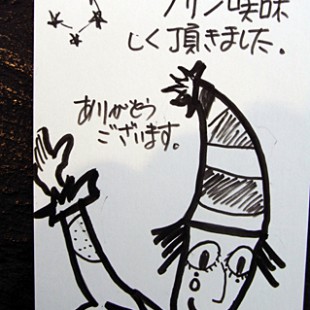 プリン美味
しく頂きました.
ありがとう
ございます。